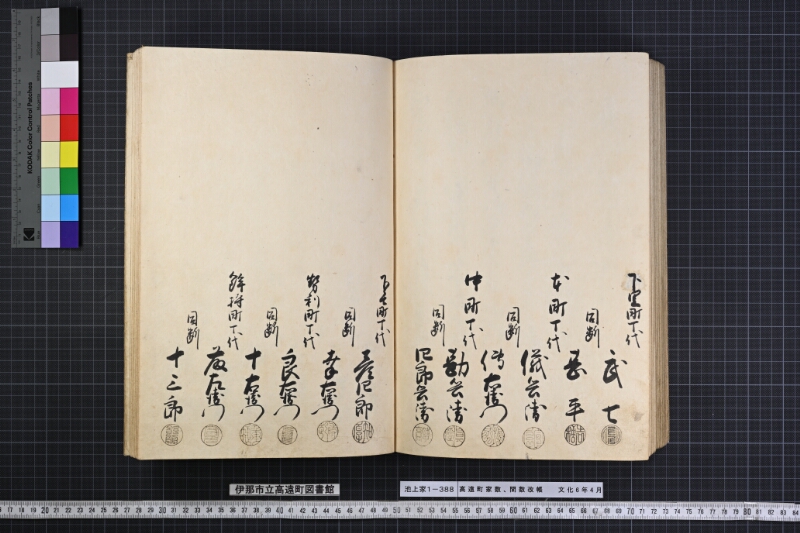 町丁代
武七
同断
甚平
本町丁代
儀兵衛
同断
傳右衛門
仲町丁代
勘兵衛
同断
四郎兵衛
町丁代
彦四郎
同断
幸右衛門
町丁代
良右衛門
同断
十右衛門
鉾持町丁代
藤左衛門
同断
十三郎
伊那市立高遠町図書館
池上家1-388 高遠町家数、間数改帳 文化6年4月
KODAK Color Control Patches